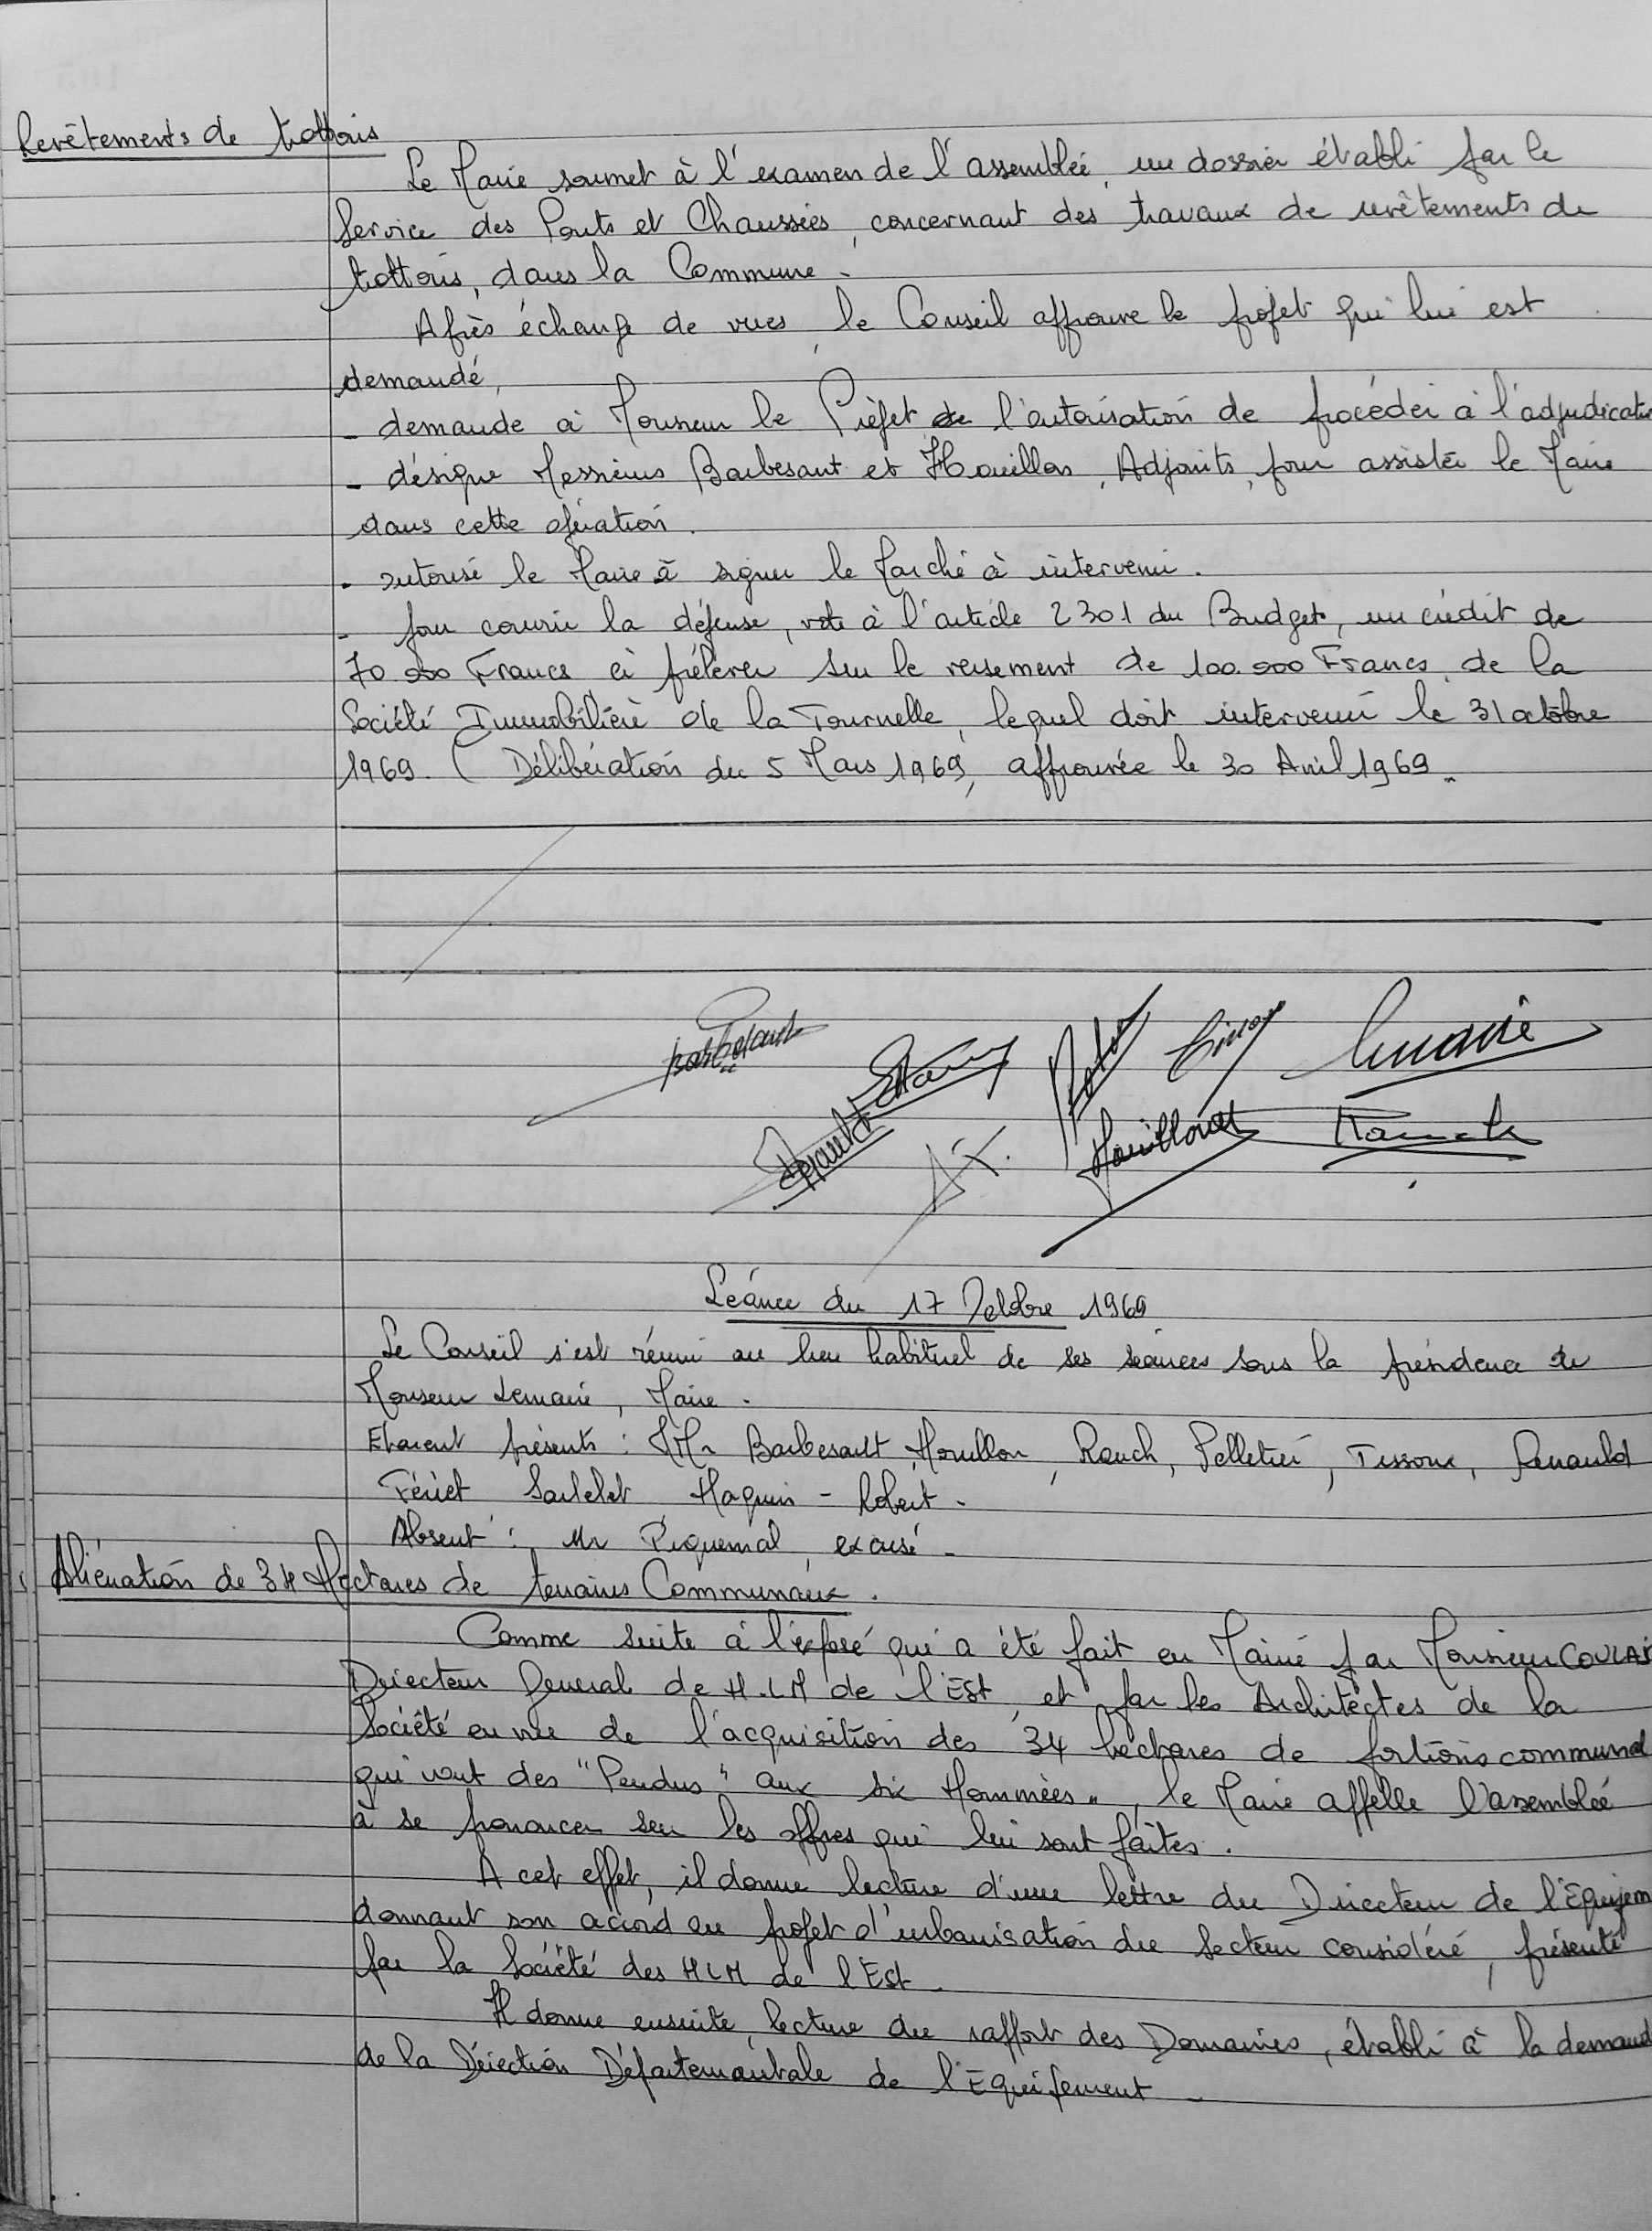 Revêtements de trottoirs
Le Maire soumet à l'examen de l'assemblée, un dossier établi par le
Service des Ponts et Chaussées, concernant des travaux de revêtements de
trottoirs, dans la Commune.
Après échange de vues, le Conseil approuve le projet qui lui est
demandé,
- demande à Monsieur le Préfet de l'autorisation de procéder à l'adjudicatio
- désigne Messieurs Barbesant et Houillon, Adjoints, pour assister le Maire
dans cette opération.
- autorise le Maire à signer le Marché à intervenir.
- pour couvrir la dépense, vote à l'article 2301 du Budget, un crédit de
70 000 Francs à prélever sur le versement de 100.000 Francs, de la
Société Immobilière de la Tournelle, lequel doit intervenir le 31 octobre
1969. ( Délibération du 5 Mars 1969, approuvée le 30 Avril 1969.
Barbesault
Renauld
Houillon
Lemaire
Rauch
Séance du 17 Octobre 1969
Le Conseil s'est réuni au lieu habituel de ses séances sous la présidence de
Monsieur Lemaire, Maire.
Etaient présents : MMr Barbesault, Houillon, Rauch, Pelletier, Tissoux, Renauld
Fériet Sartelet Haquin - Robert.
Absent : Mr Piquemal, excusé.
Aliénation de 34 Hectares de terrains Communaux.
Comme suite à l'exposé qui a été fait en Mairie par Monsieur COULAI
Directeur Général de H.LM de l'Est, et par les Architectes de la
Société en vue de l'acquisition des 34 hectares de portions communal
qui vont des "Pendus" aux six Hommées", le Maire appelle l'assemblée
à se prononcer sur les offres qui lui sont faites.
A cet effet, il donne lecture d'une lettre du Directeur de l'Equipem
donnant son accord au projet d'urbanisation du Secteur considéré, présenté
par la Société des HLM de l'Est.
Il donne ensuite, lecture du rapport des Domaines, établi à la demand
de la Direction Départementale de l'Equipement.